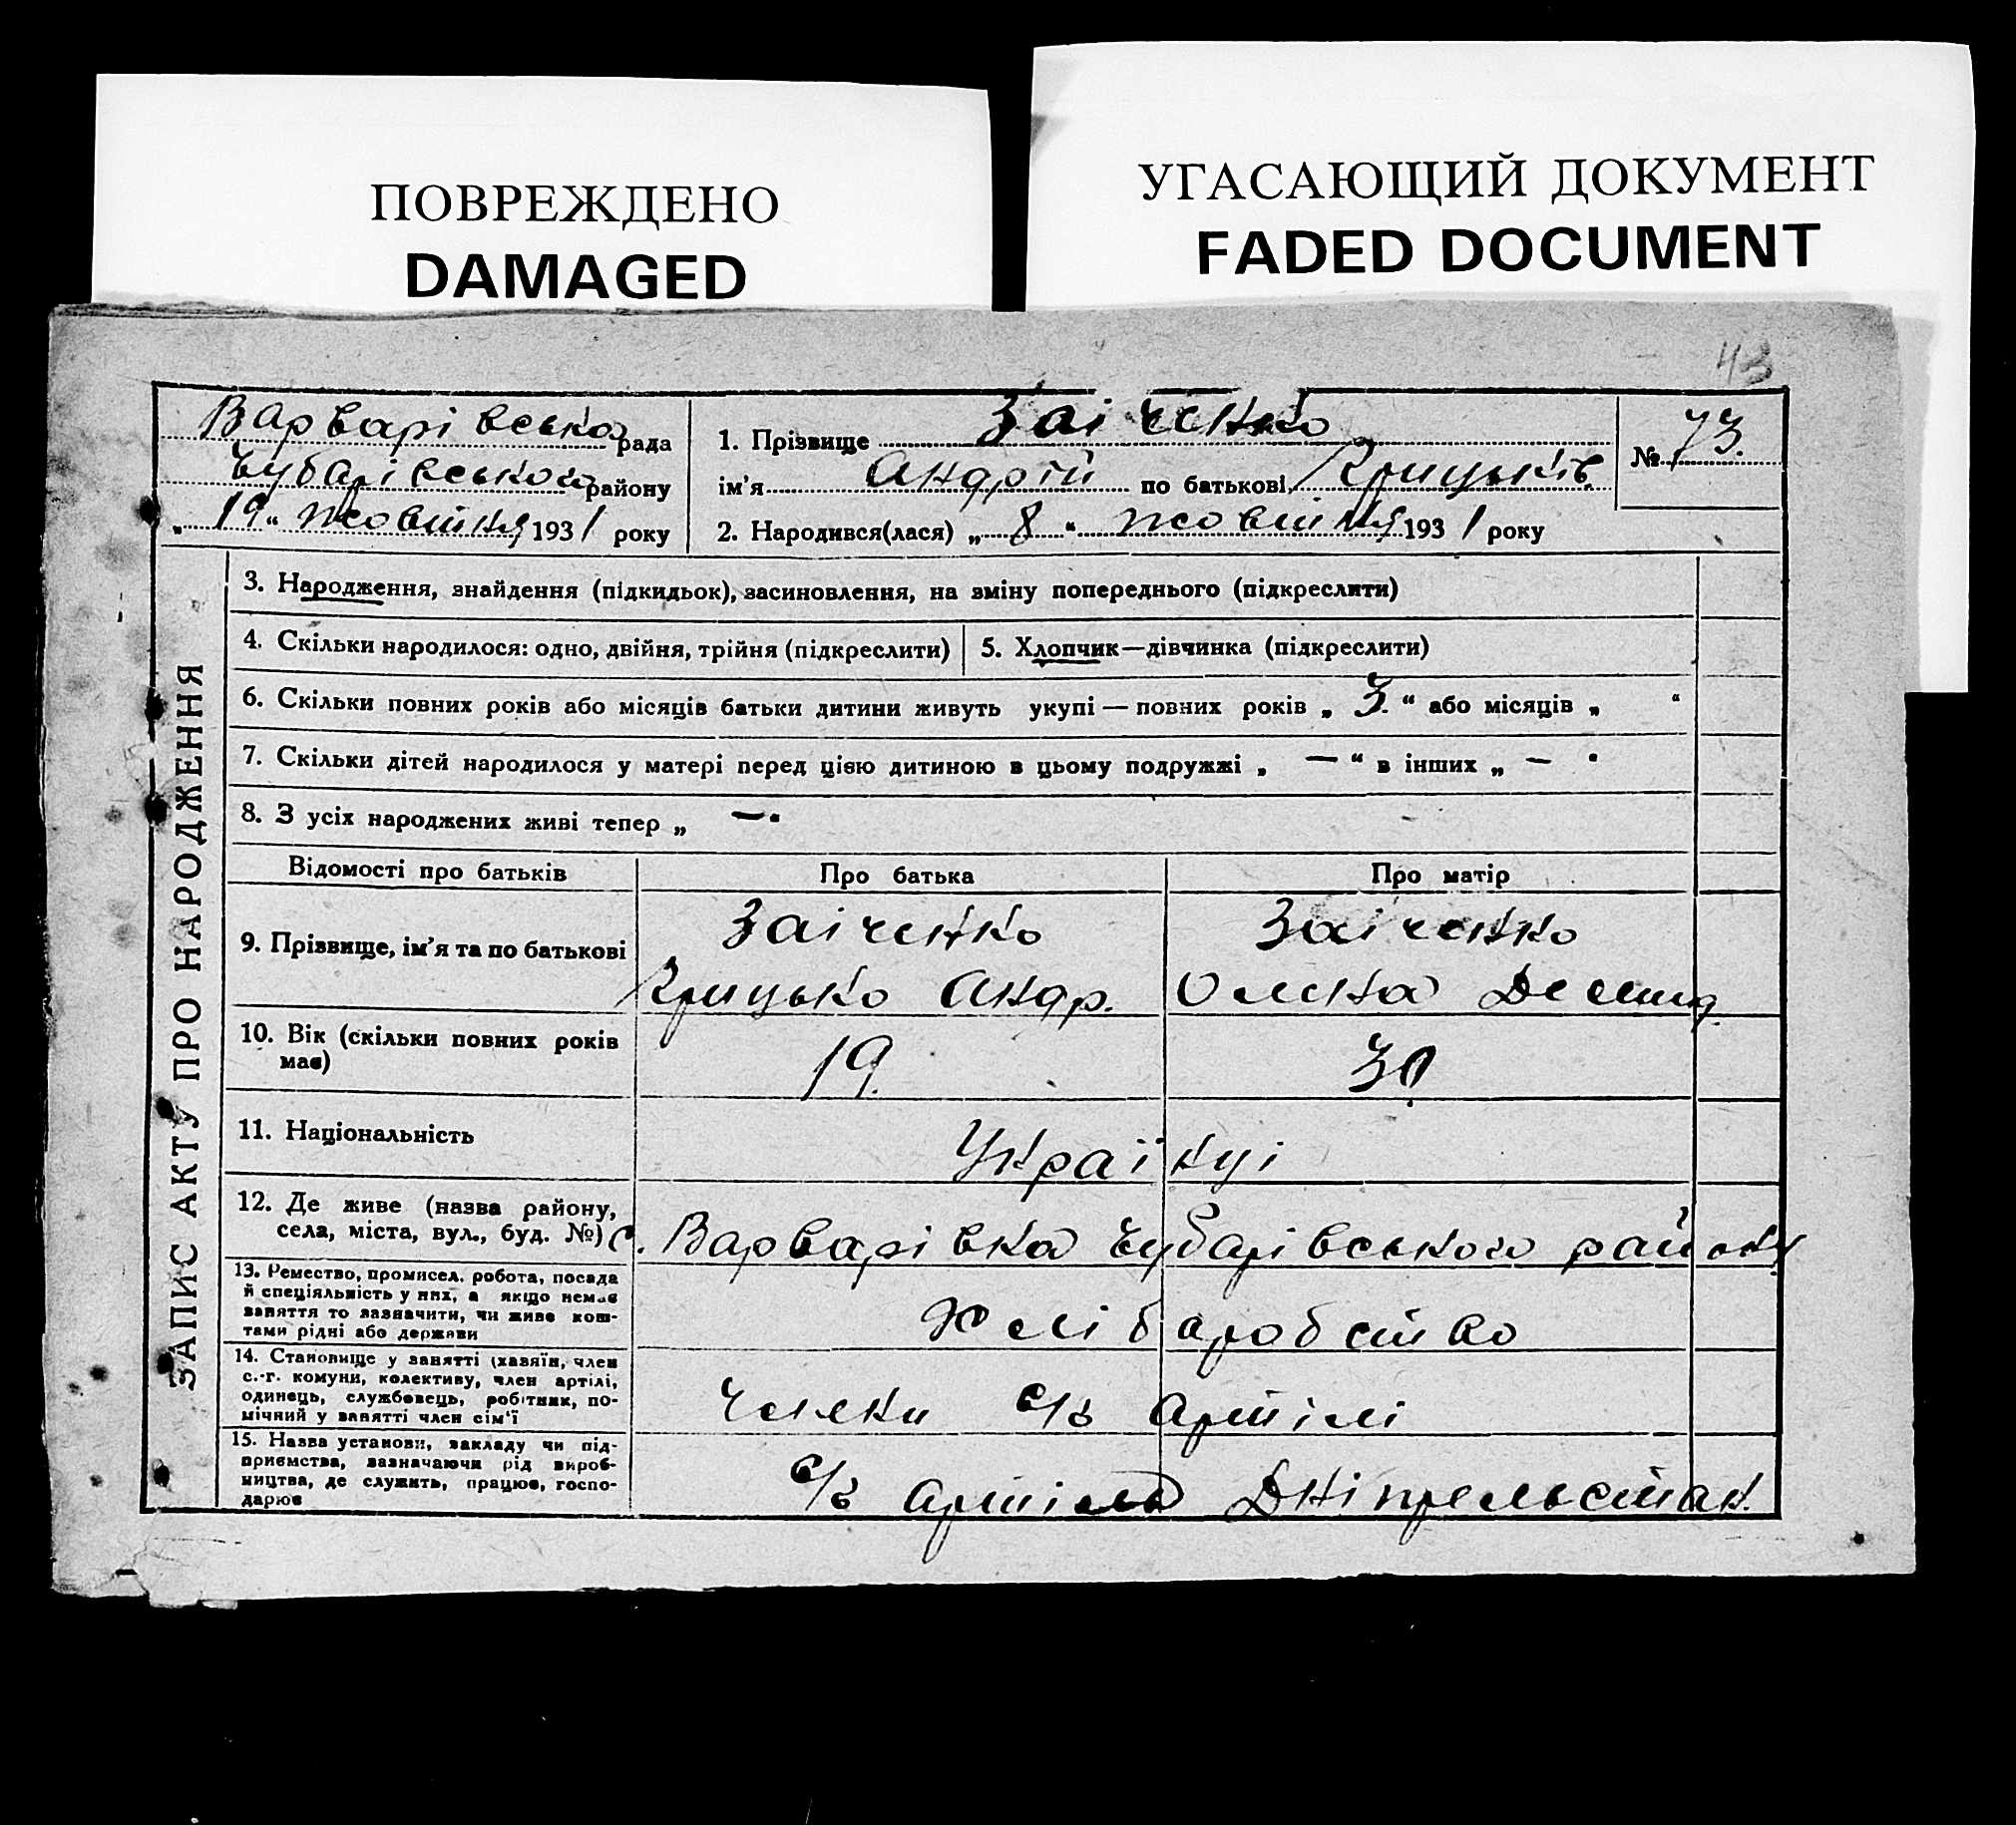 ПОВРЕЖДЕНО
DAMAGED
УГАСАЮЩИЙ ДОКУМЕНТ
FADED DOCUMENT
43
Варварівська рада
Чубарівського району
„19“ жовтня 1931 року
1. Прізвище Заіченко
ім'я Андрій по батькові Грицьків
2. Народився(лася) „8“ жовтня 1931 року
№ 73.
ЗАПИС АКТУ ПРО НАРОДЖЕННЯ
3. Народження, знайдення (підкидьок), засиновлення, на зміну попереднього (підкреслити)
4. Скільки народилося: одно, двійня, трійня (підкреслити)
5. Хлопчик—дівчинка (підкреслити)
6. Скільки повних років або місяців батьки дитини живуть укупі — повних років „ 3. “ або місяців „ “
7. Скільки дітей народилося у матері перед цією дитиною в цьому подружжі „ — “ в інших „ — “
8. З усіх народжених живі тепер „ — “
Відомості про батьків Про батька Про матір
9. Прізвище, ім'я та по батькові
Заіченко
Грицько Андр.
Заіченко
Олена Демид.
10. Вік (скільки повних років
має)
19.
30
11. Національність
Українці
12. Де живе (назва району,
села, міста, вул., буд. №)
с. Варварівка Чубарівського району
13. Ремество, промисел, робота, посада
й спеціяльність у них, а якщо немає
заняття то зазначити, чи живе кош-
тами рідні або держави
Хлібаробство
14. Становище у занятті (хазяїн, член
с.-г. комуни, колективу, член артілі,
одинець, службовець, робітник, по-
мічний у занятті член сім'ї
Члени с/г артілі
15. Назва установи, закладу чи під-
приємства, зазначаючи рід вироб-
ництва, де служить, працює, госпо-
дарює
с/г артіль Дніпрельстан.